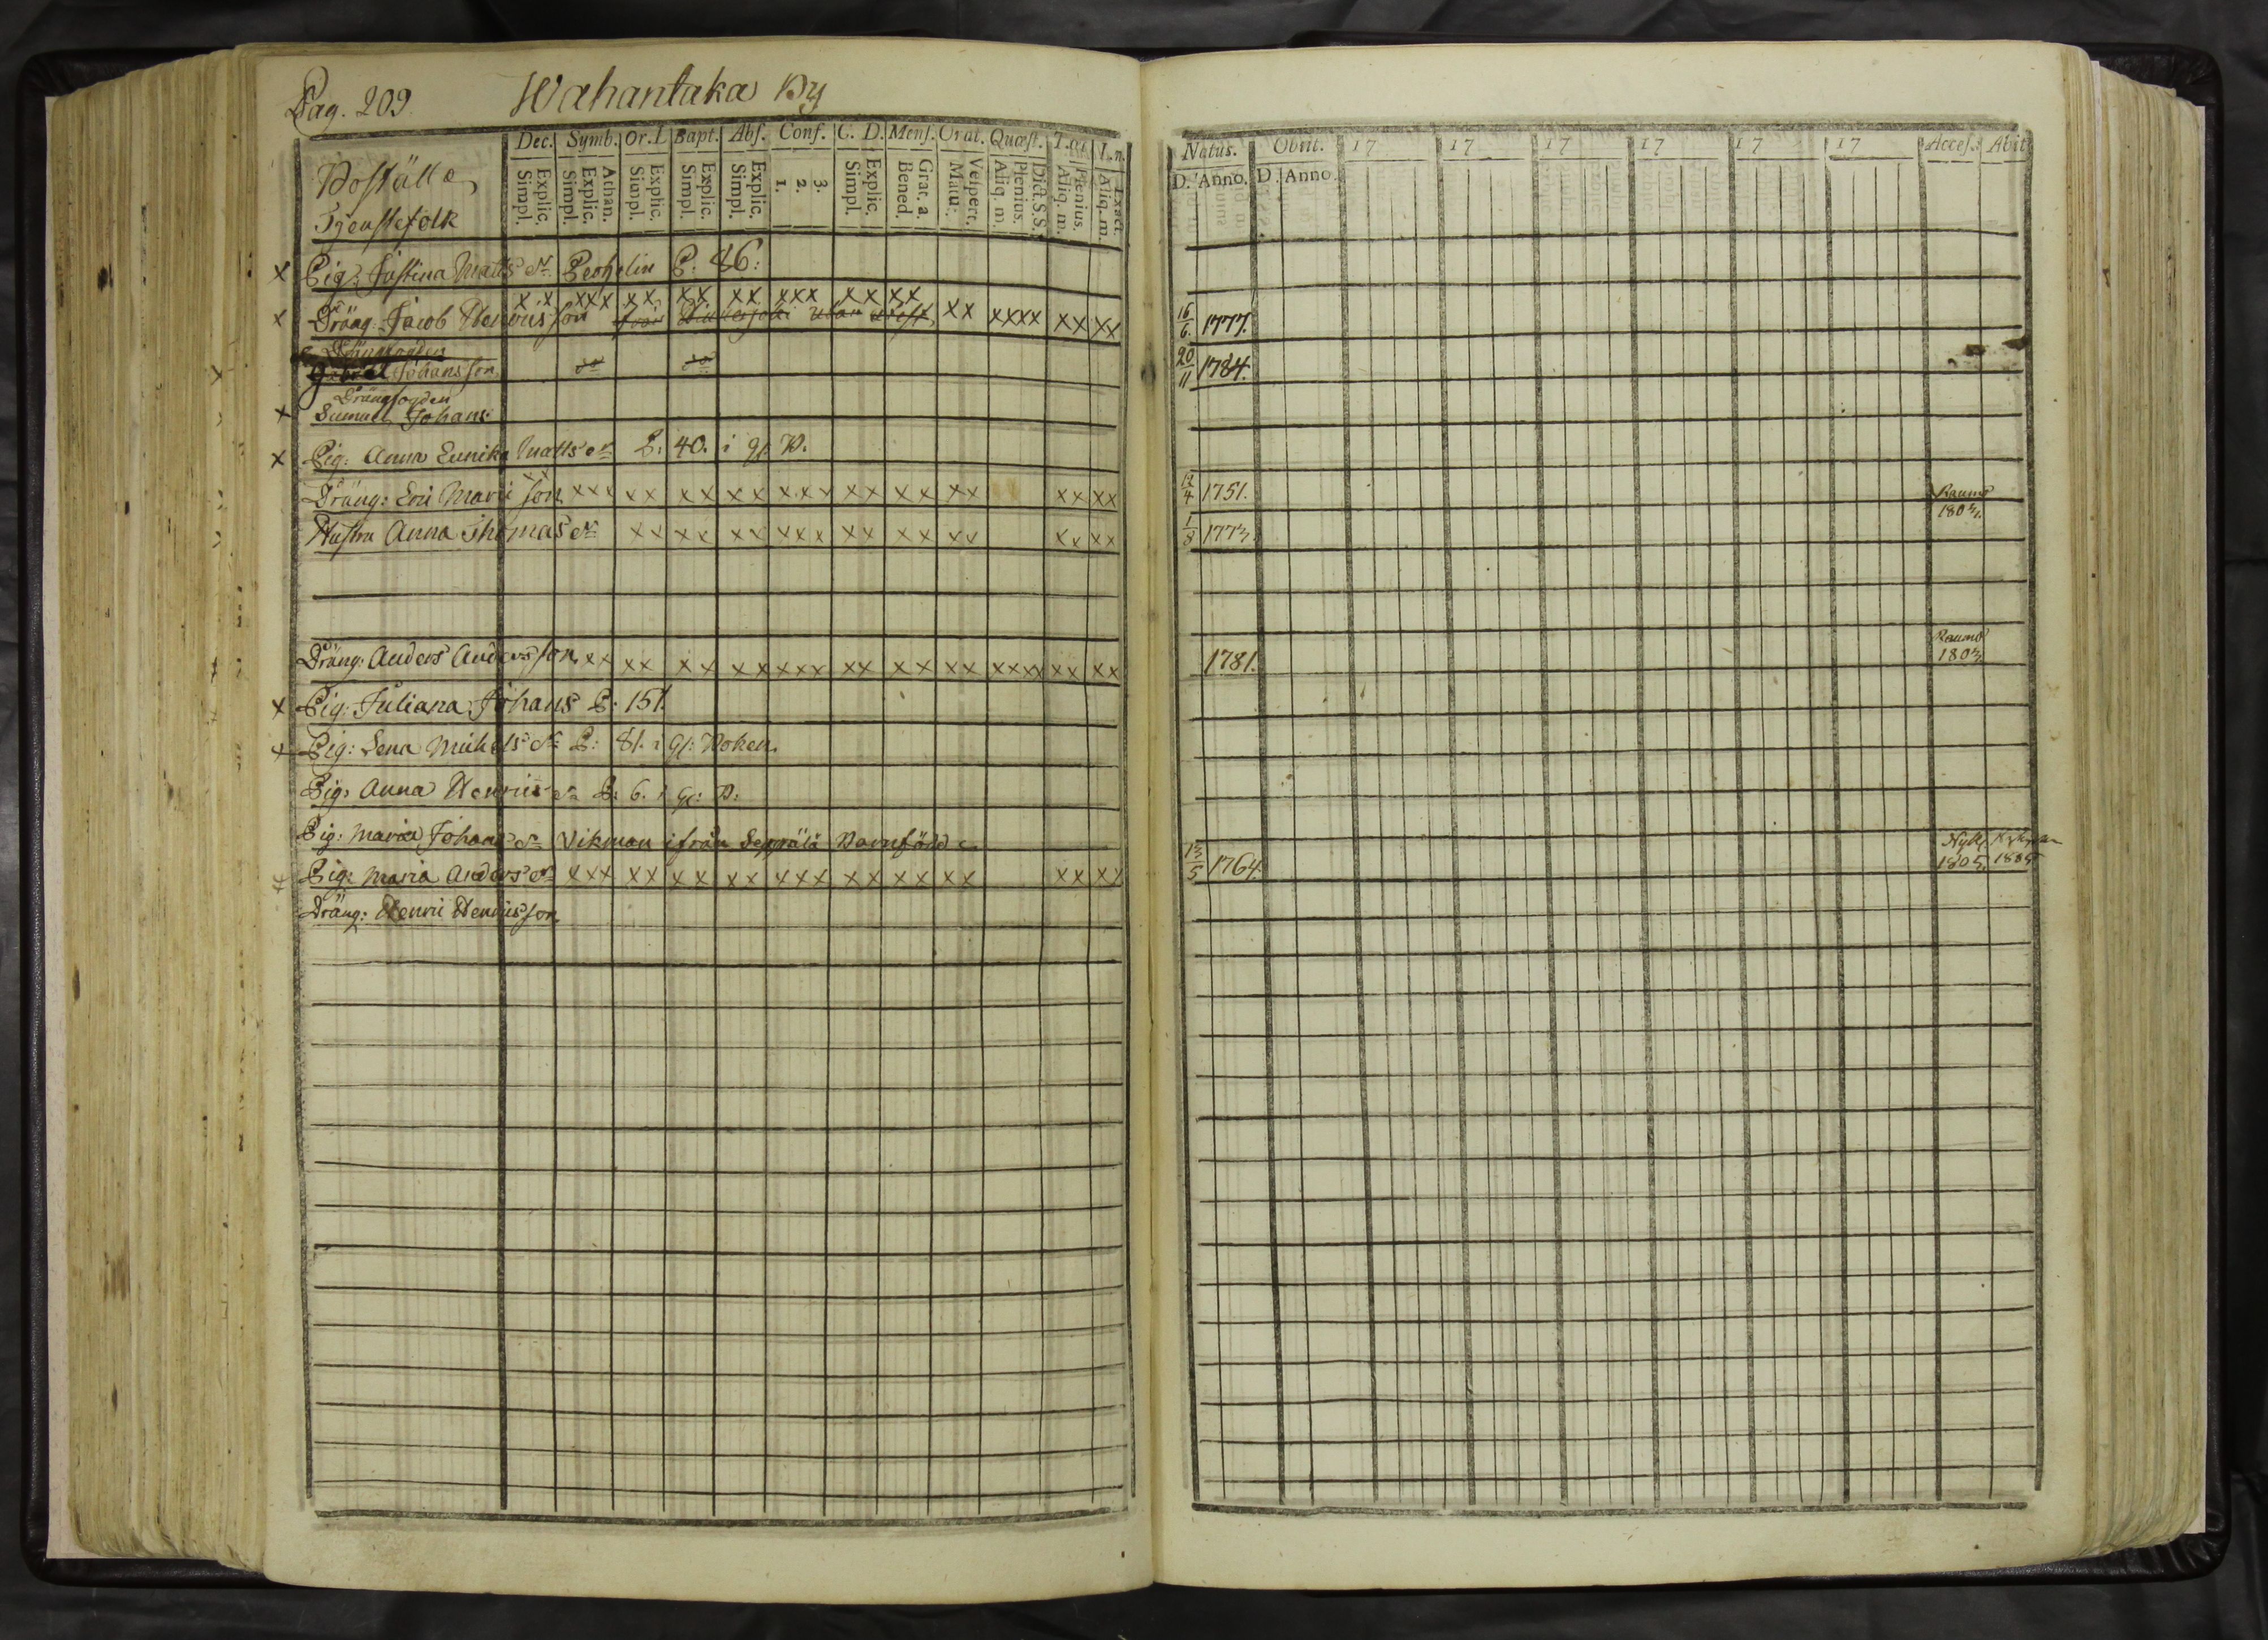 Pag. 209. Wahantaka By
Dec. Symb. Or. L Bapt. Abs. Conf. C. D. Mens. Orat. Quæst. T.
Explic. Simpl. Athan. Explic. Simpl. Explic. Simpl. Explic. Simpl. Explic. Simpl. 3. 2. 1. Explic. Simpl. Grac. a. Bened. Vesper. Matut. Dict. S. S. Plenius. Aliq. m. Plenius. Aliq. m. Exact. Aliq. m.
Boställe
Tjenstefolk
x Pig: Justina Matts dr P. 86:
x x xxx xx xx xx xxx xx xx
x Dräng: Jacob Henricsson från utan xx xxxx xx xx
Johansson do do
Drängfogden
x Samuel Johans:
x Pig: Anna Eunika Matts dr P. 40. i gl. B.
xx
Dräng: Eric Maric son xxx xx xx xx xxx xx xx xx xx xx
Hustru Anna Thomas dr xx xx xx xxx xx xx xx xx xx
Dräng: Anders Andersson xx xx xx xx xxx xx xx xx xxxx xx xx
x Pig: Juliana Johans P. 151.
x Pig: Lena Michels dr P: 81. i gl: Boken.
Pig: Anna Henrics dr P: 6. i gl: B:
Pig: Maria Johans dr Vikman ifrån Seppälä Barnföd
Pig: Maria Anders dr xxx xx xx xx xxx xx xx xx xx xx
Dräng: Henric Henricsson
Natus. Obiit. 17 17 17 17 17 17 Acces. Abit
D. Anno. D. Anno.
16/6 1777.
20/11 1784.
12/4 1751. Raumo 1803.
1/8 1773.
1781. Raumo 1803
13/5 1764. 1805. 1805